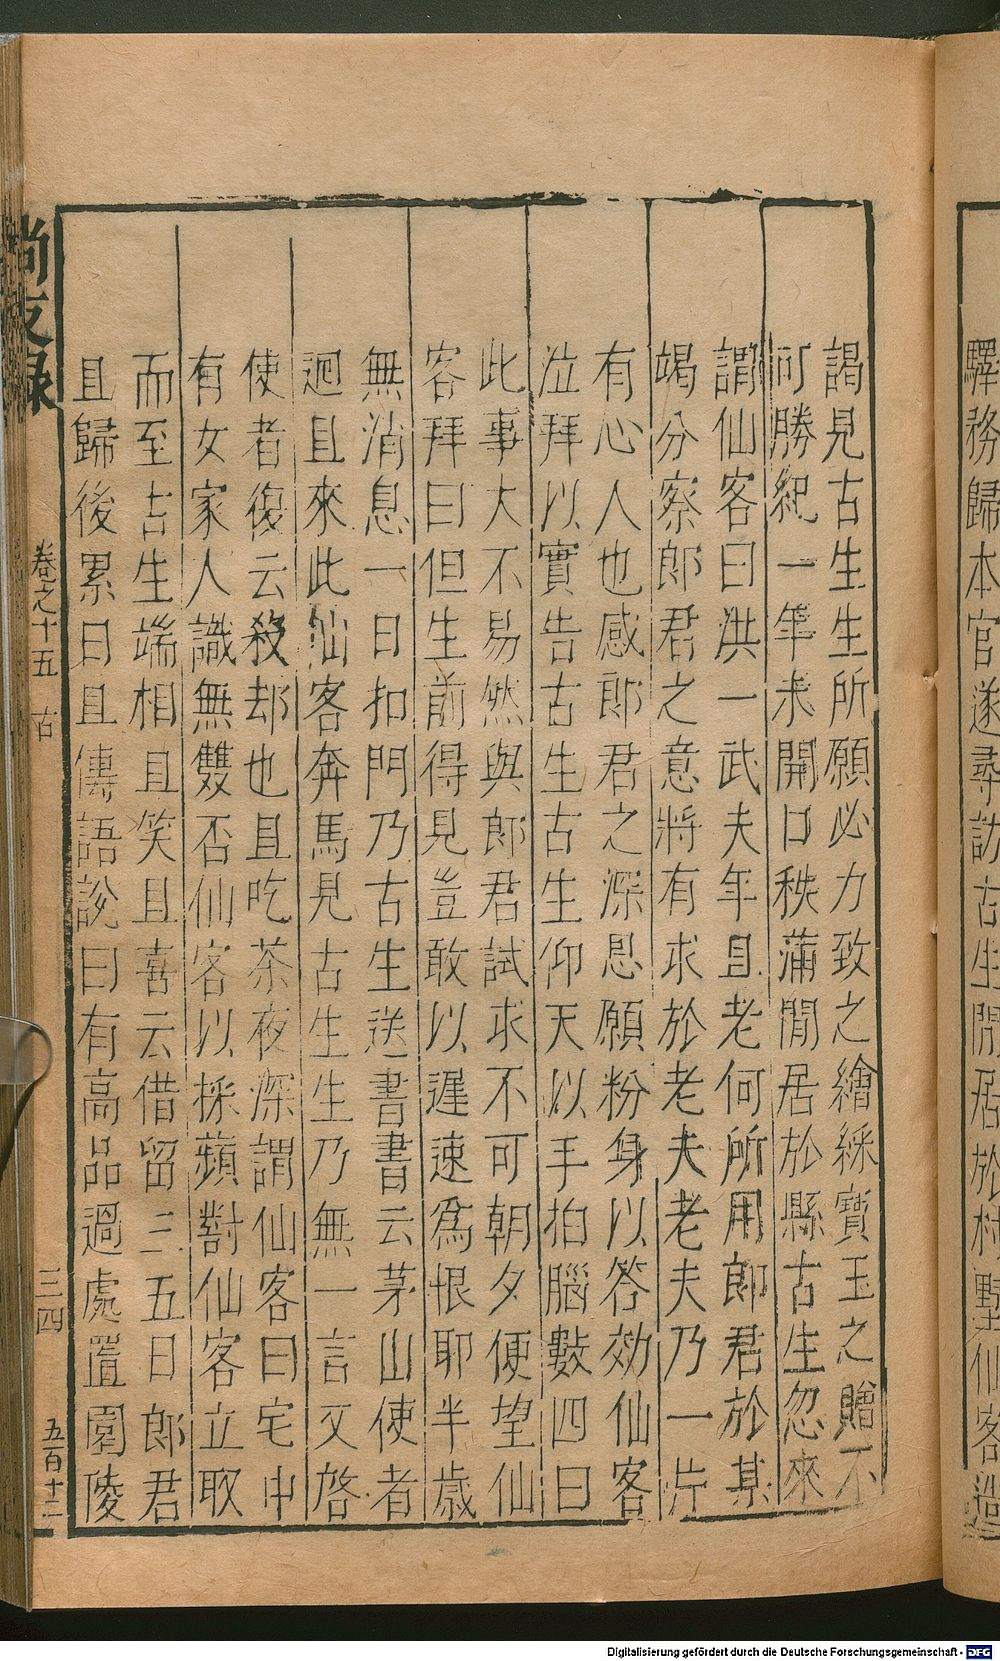 驛務歸本官遂尋訪古生閒居於村墅仙客造
謁見古生生所願必力致之繒綵寶玉之贈不
可勝紀一年未開口秩滿閒居於縣古生忽來
謂仙客曰洪一武夫年且老何所用郎君於某
竭分察郎君之意將有求於老夫老夫乃一片
有心人也感郎君之深恩願粉身以答効仙客
泣拜以實告古生古生仰天以手拍腦數四曰
此事大不易然與郎君試求不可朝夕便望仙
客拜曰但生前得見豈敢以遲速爲恨耶半歲
無消息一日扣門乃古生送書書云茅山使者
迴且來此仙客奔馬見古生生乃無一言又啓
使者復云殺却也且吃茶夜深謂仙客曰宅中
有女家人識無雙否仙客以採蘋對仙客立取
而至古生端相且笑且喜云借留三五日郎君
且歸後累日且傳語說曰有高品過處置園陵
尚友錄 卷之十五 古 三四 五百十二
Digitalisierung gefördert durch die Deutsche Forschungsgemeinschaft - DFG